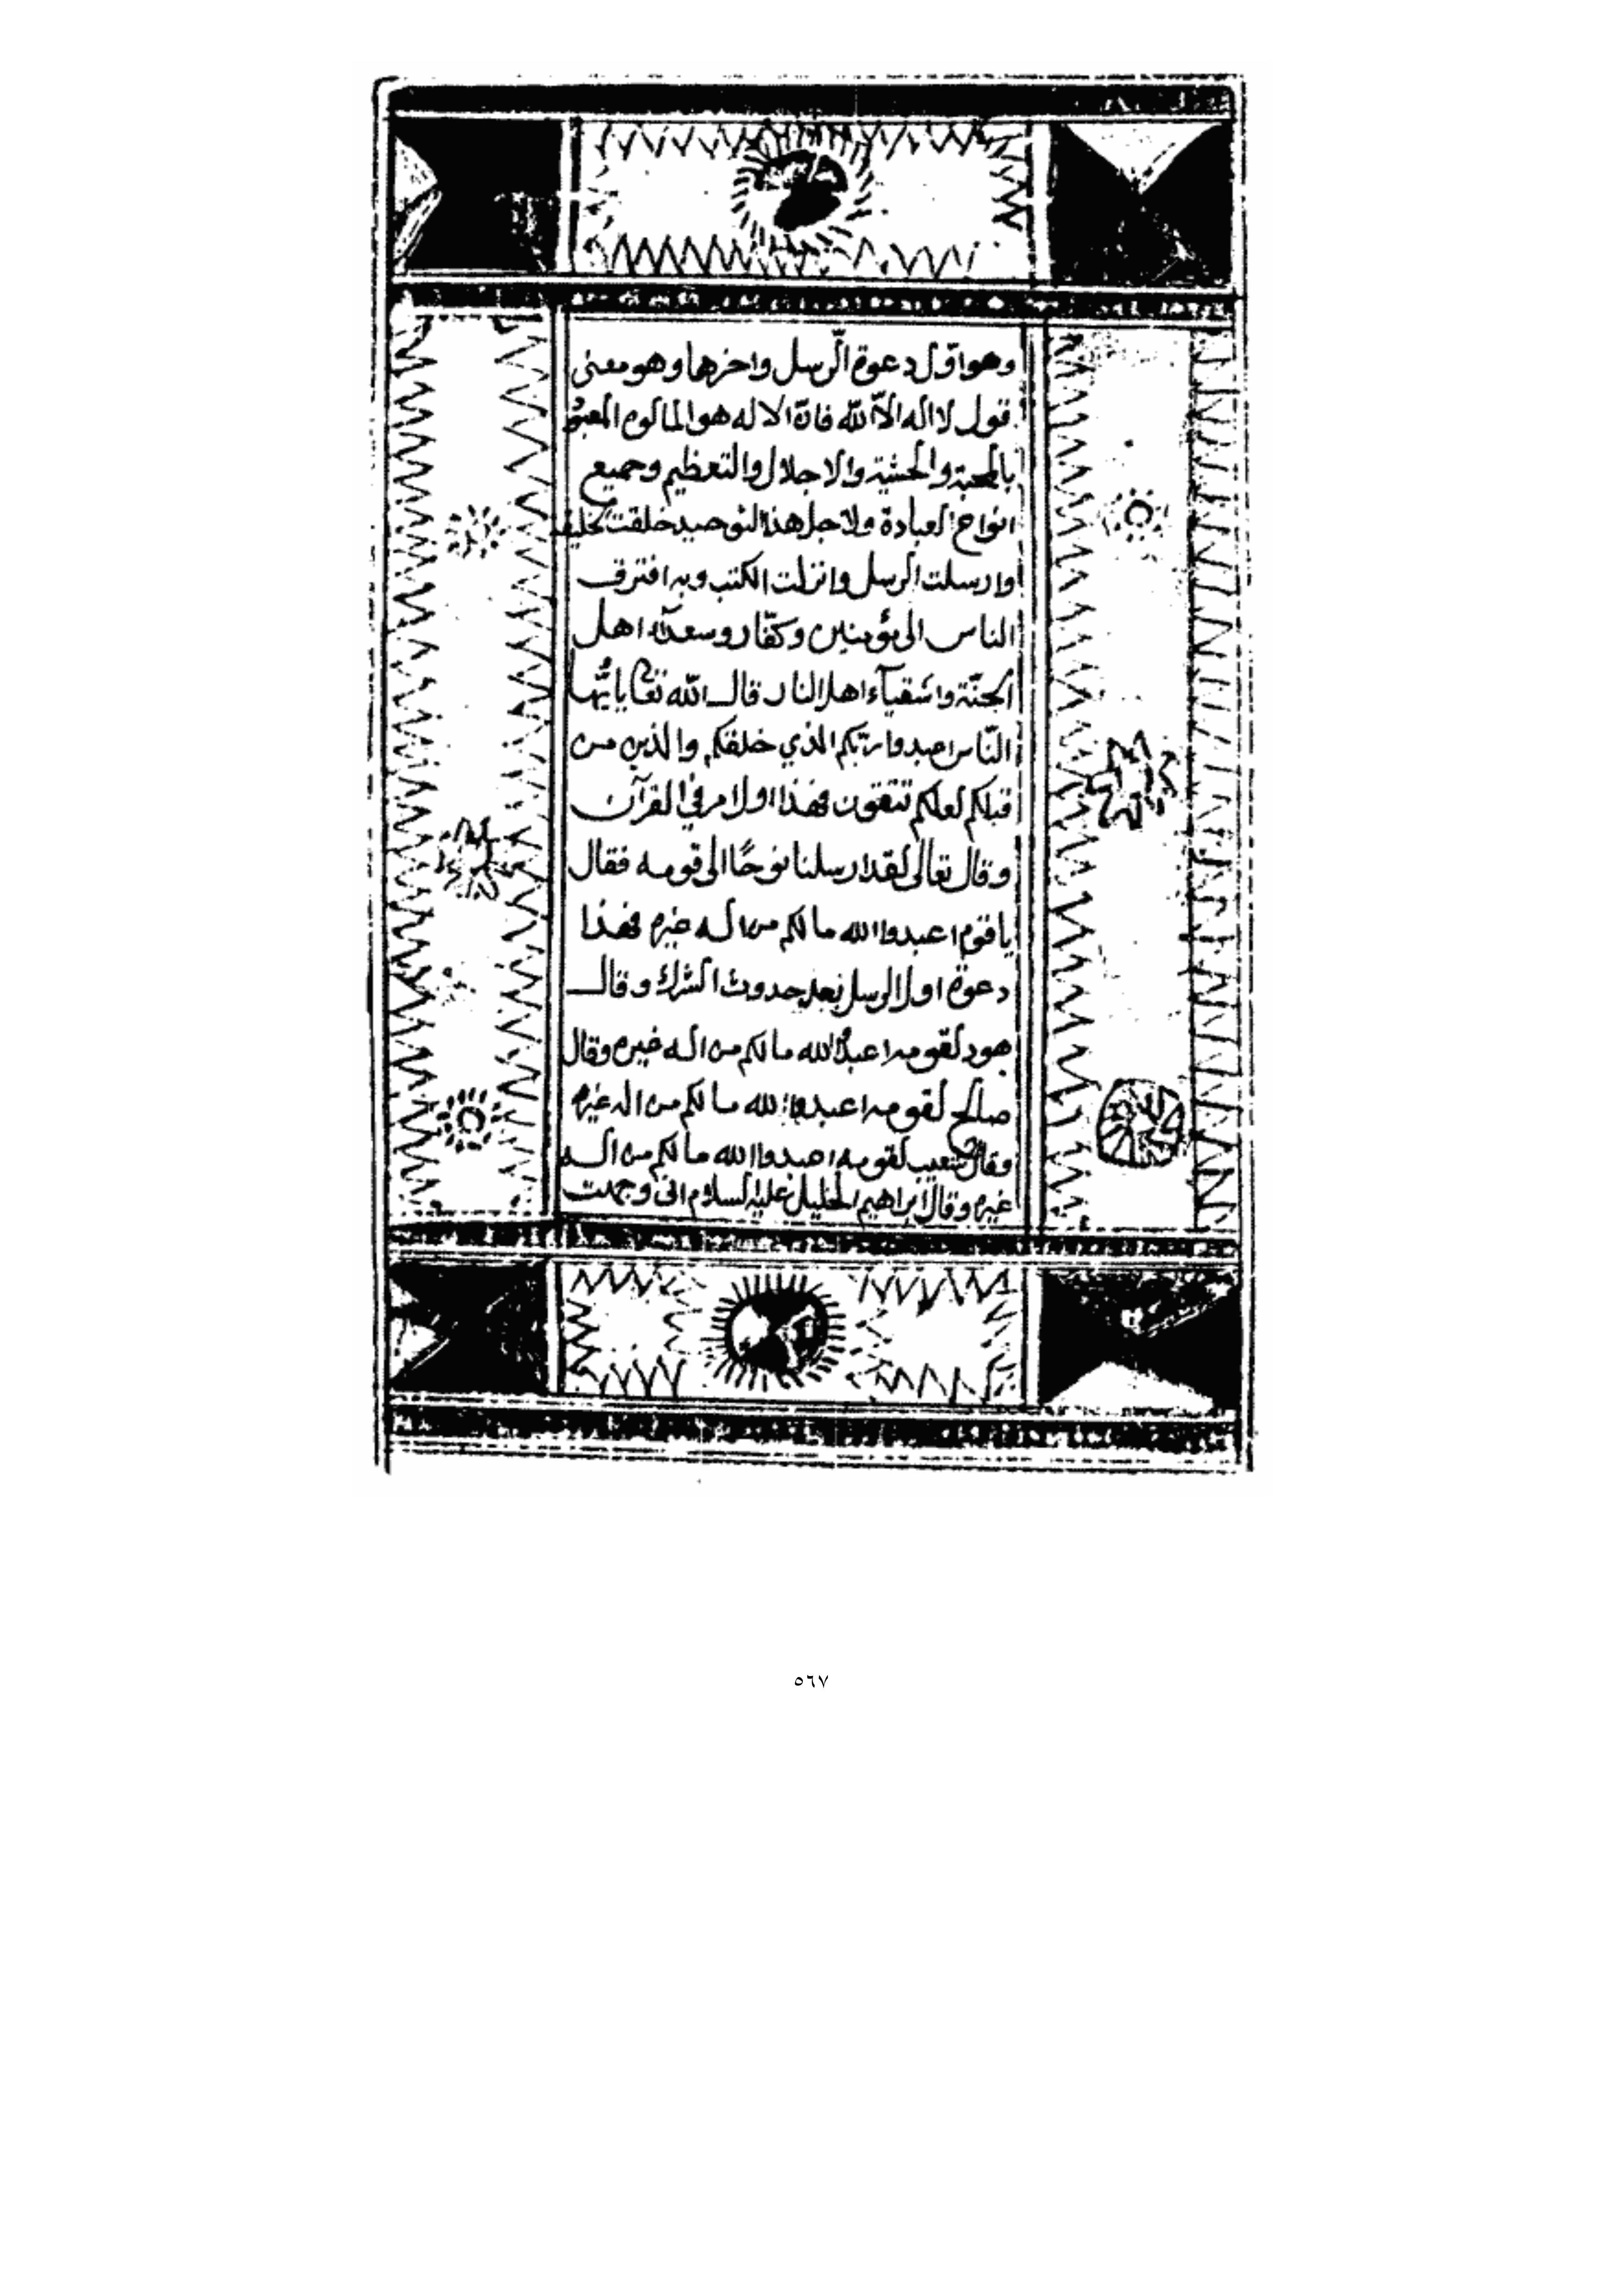 وهو اوّل دعوة الرّسل واخرها وهو معنى
قول لا اله الاّ الله فانّ الاله هو المالوه المعبود
بالمحبة والخشية والاجلال والتعظيم وجميع
انواع العبادة ولاجل هذا التوحيد خلقت الخليقة
وارسلت الرسل وانزلت الكتب وبه افترق
الناس الى مؤمنين وكفّار وسعدآء اهل
الجنّة واشقيآء اهل النار قال الله تعالى يا ايّها
النّاس اعبدوا ربّكم الذي خلقكم والذين من
قبلكم لعلكم تتقون فهذا اول امر في القرآن
وقال تعالى لقد ارسلنا نوحًا الى قومه فقال
يا قوم اعبدوا الله مالكم من اله غيره فهذا
دعوة اول الرسل بعد حدوث الشرك وقال
هود لقومه اعبدوا الله مالكم من اله غيره وقال
صالح لقومه اعبدوا الله مالكم من اله غيره
وقال شعيب لقومه اعبدوا الله مالكم من اله
غيره وقال ابراهيم الخليل عليه السلام اني وجهت
٥٦٧